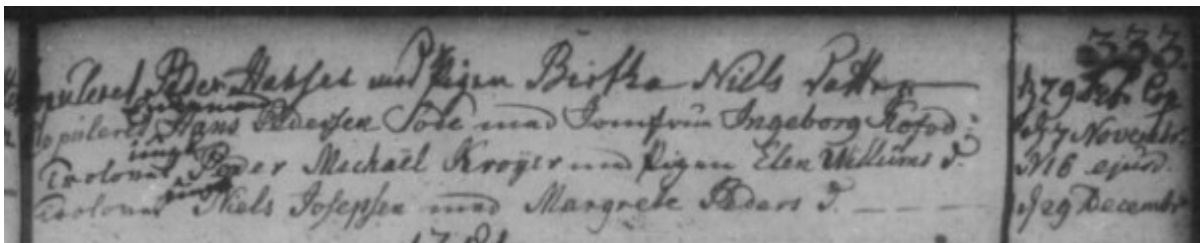 333.
Copuleret Peder Hansen med Pigen Birtha Niels Datter
Copuleret Hans Pedersen Sode med Jomfrue Ingeborg Kofod: d 27 Novembr.
Troloved ungk Peder Michaël Kroÿer med Pigen Elen Willums d. d 16 ejusd.
Troloved ungk Niels Josephsen med Margrete Peders d. d 29 Decembr